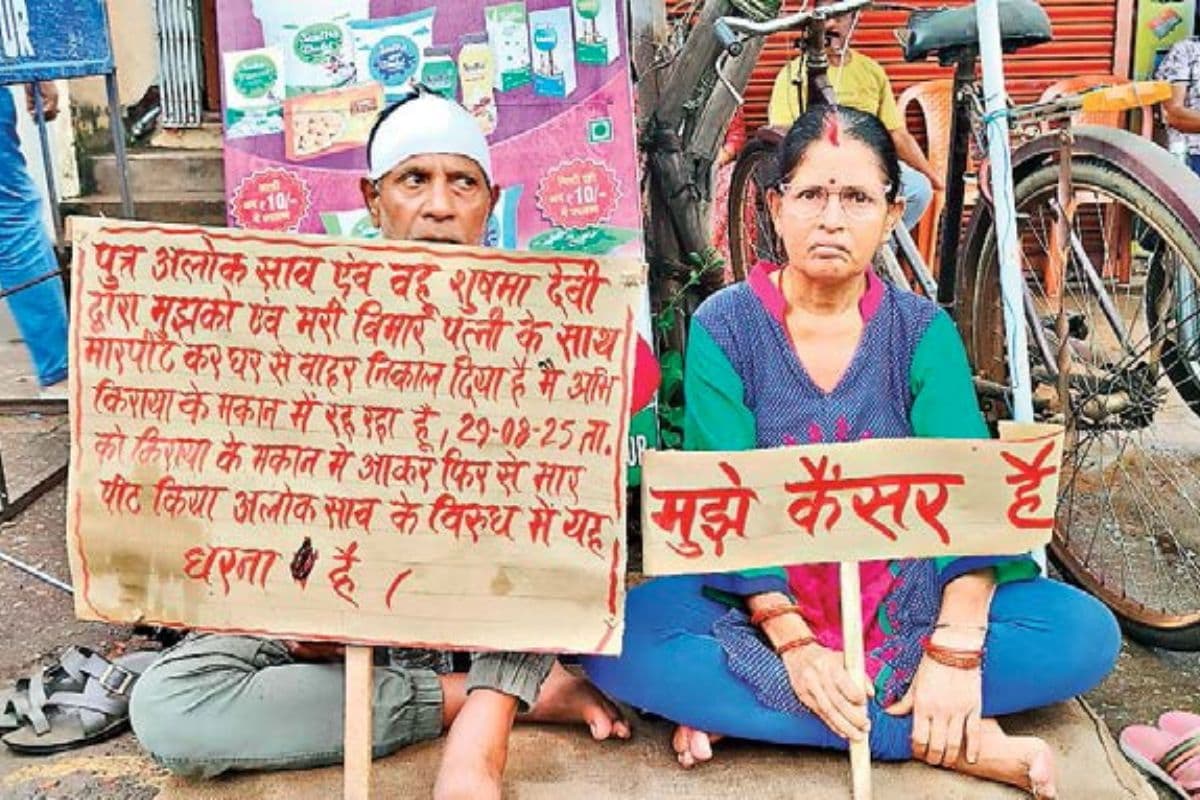 पुत्र अलोक साव एंव वहु शुषमा देवी
द्वारा मुझको एंव मेरी बिमार पत्नी के साथ
मारपीट कर घर से वाहर निकाल दिया है मै अभि
किराया के मकान में रह रहा हूँ, 29-08-25 ता.
को किराया के मकान मे आकर फिर से मार
पीट किया अलोक साव के विरुध में यह
धरना है।
मुझे कैंसर है
₹10/-
₹10/-